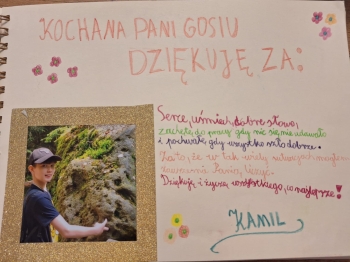 KOCHANA PANI GOSIU
DZIĘKUJĘ ZA:
Serce, uśmiech, dobre słowo,
zachętę do pracy gdy nic się nie udawało
i pochwałę gdy wszystko szło dobrze.
Za to, że w tak wielu sytuacjach mogłem
na Panią liczyć.
Dziękuję i życzę wszystkiego, co najlepsze!
KAMIL